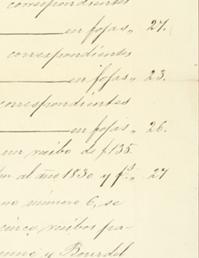 correspondientes
en fojas „ 27.
correspondientes
en fojas „ 23.
correspondientes
en fojas „ 26.
un recibo de f 135
al año 1830 y f.s „ 27
no número 6, se
cinco recibos pa-
y Bourdel